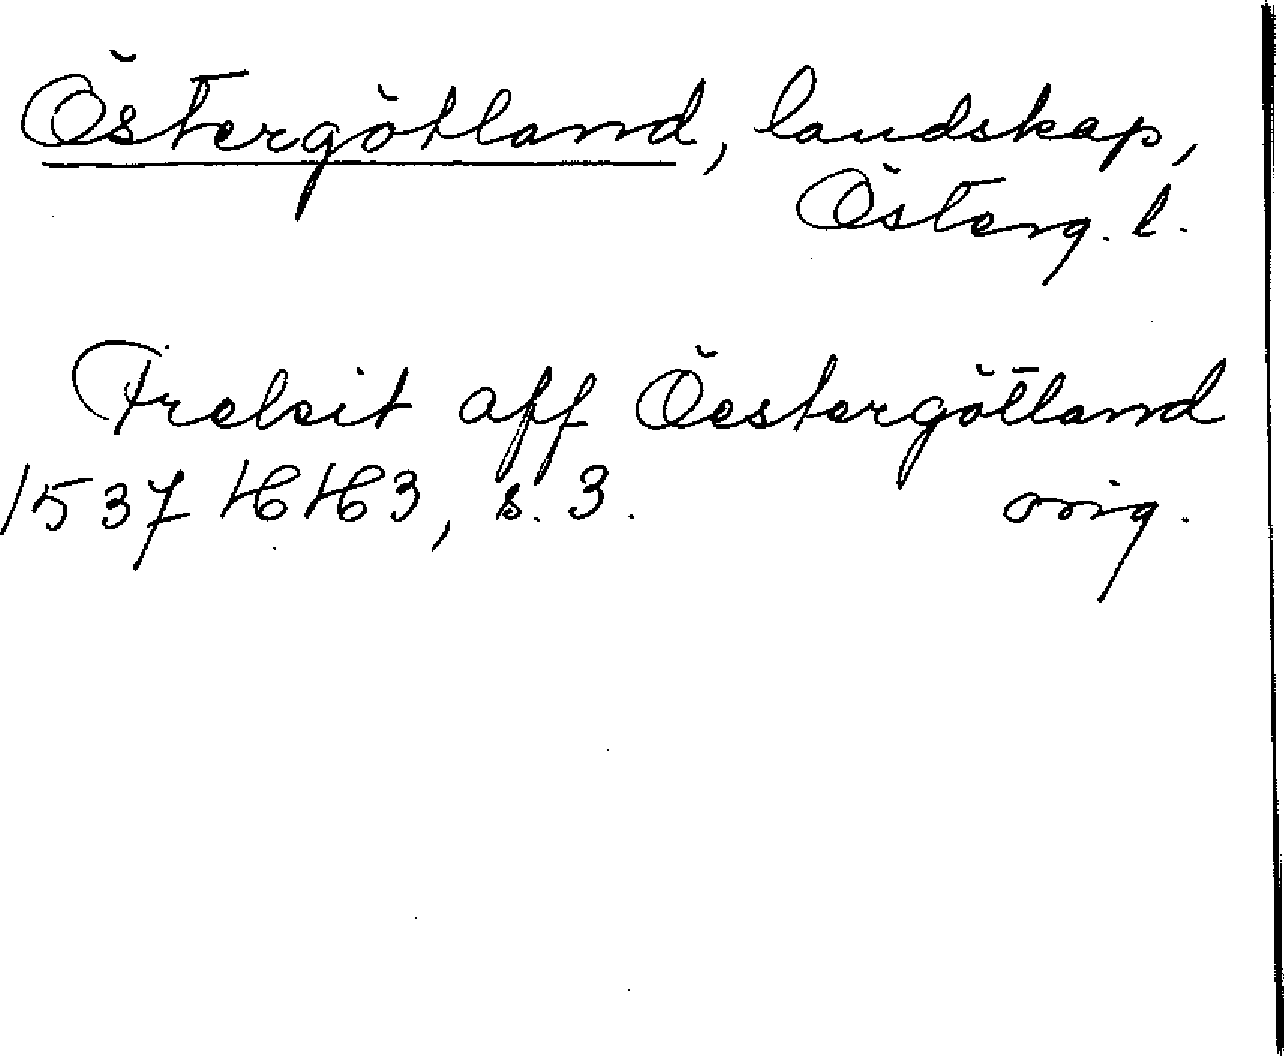 Östergötland, landskap,
Österg. l.
Frelsit aff Öestergötland
1537 HH3, s. 3. orig.